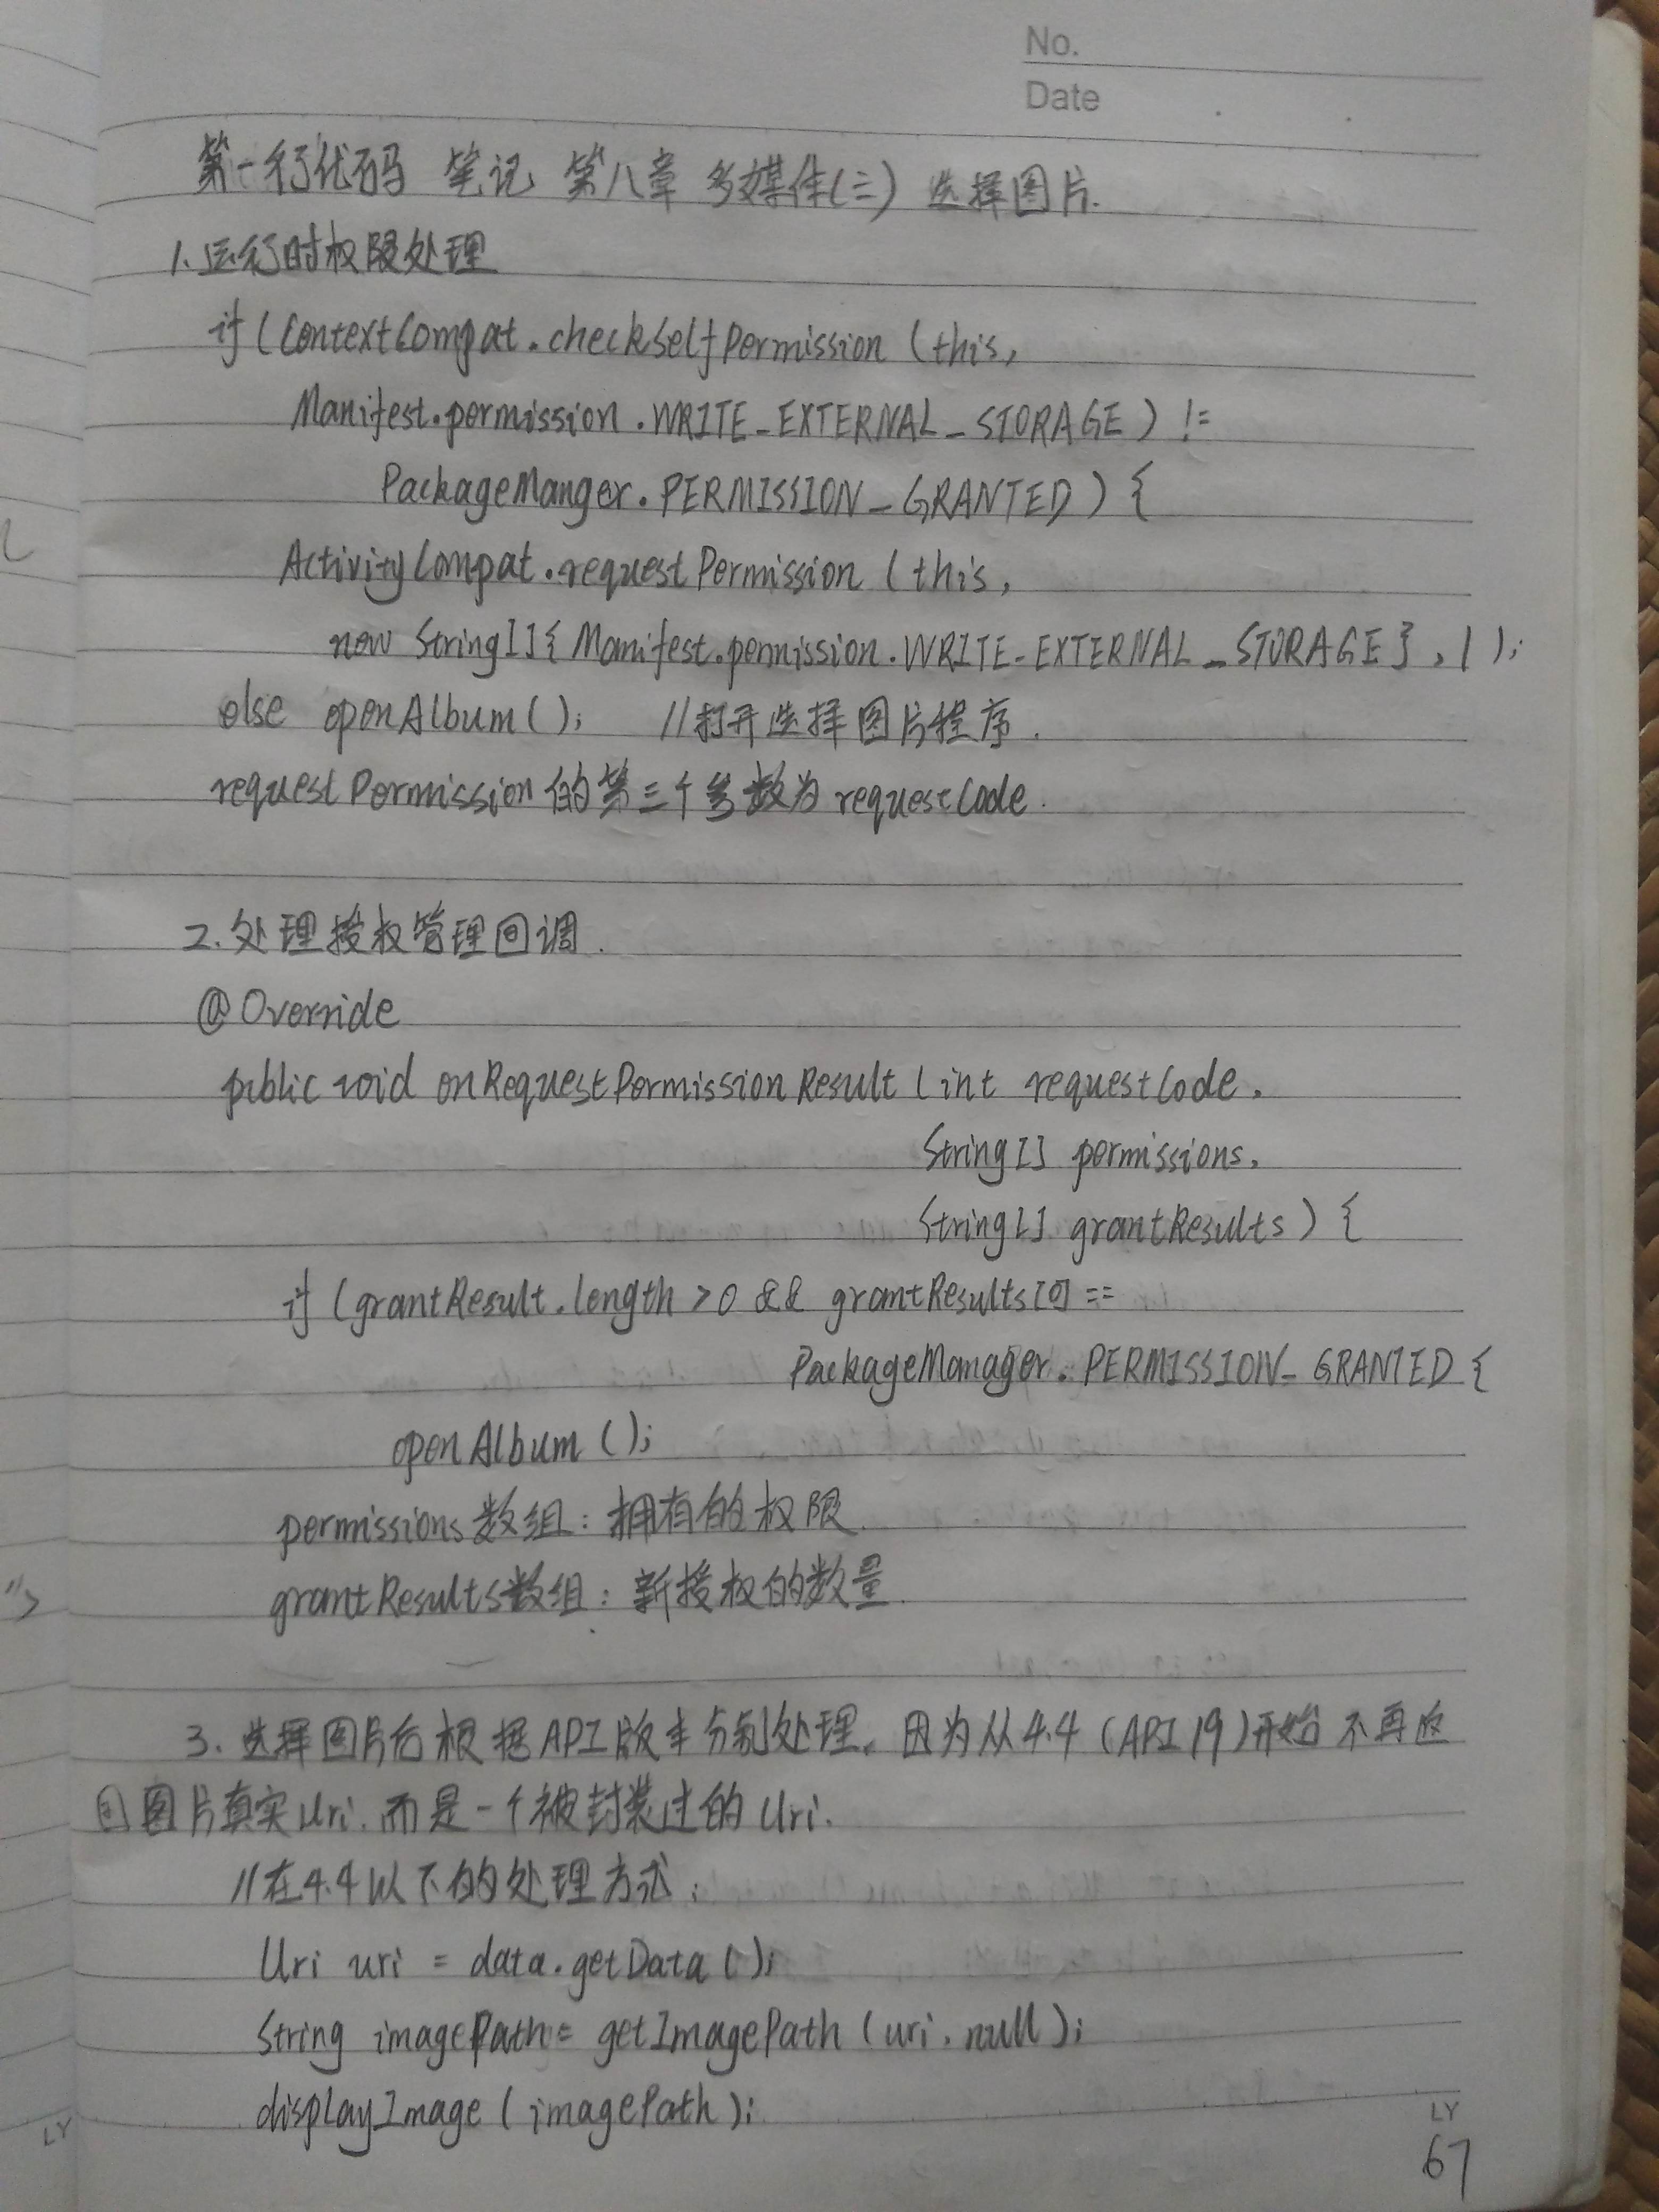 No.
Date
第一行代码 笔记 第八章 多媒体(三) 选择图片.
1.运行时权限处理
if(ContextCompat.checkSelfPermission (this,
Manifest.permission.WRITE_EXTERNAL_STORAGE) !=
PackageManger.PERMISSION_GRANTED) {
ActivityCompat.requestPermission (this,
new String[]{Manifest.permission.WRITE_EXTERNAL_STORAGE}, 1);
else openAlbum(); //打开选择图片程序.
requestPermission的第三个参数为requestCode.
2.处理授权管理回调.
@Override
public void onRequestPermissionResult (int requestCode,
String[] permissions,
String[] grantResults) {
if (grantResult.length > 0 && grantResults[0] ==
PackageManager.PERMISSION_GRANTED {
openAlbum ();
permissions数组: 拥有的权限.
grantResults数组: 新授权的数量.
">
3. 选择图片后根据API版本分别处理, 因为从4.4 (API 19)开始 不再返
回图片真实Uri.而是一个被封装过的Uri.
//在4.4以下的处理方式:
Uri uri = data.getData();
String imagePath= getImagePath (uri,null);
displayImage (imagePath);
LY
LY
67